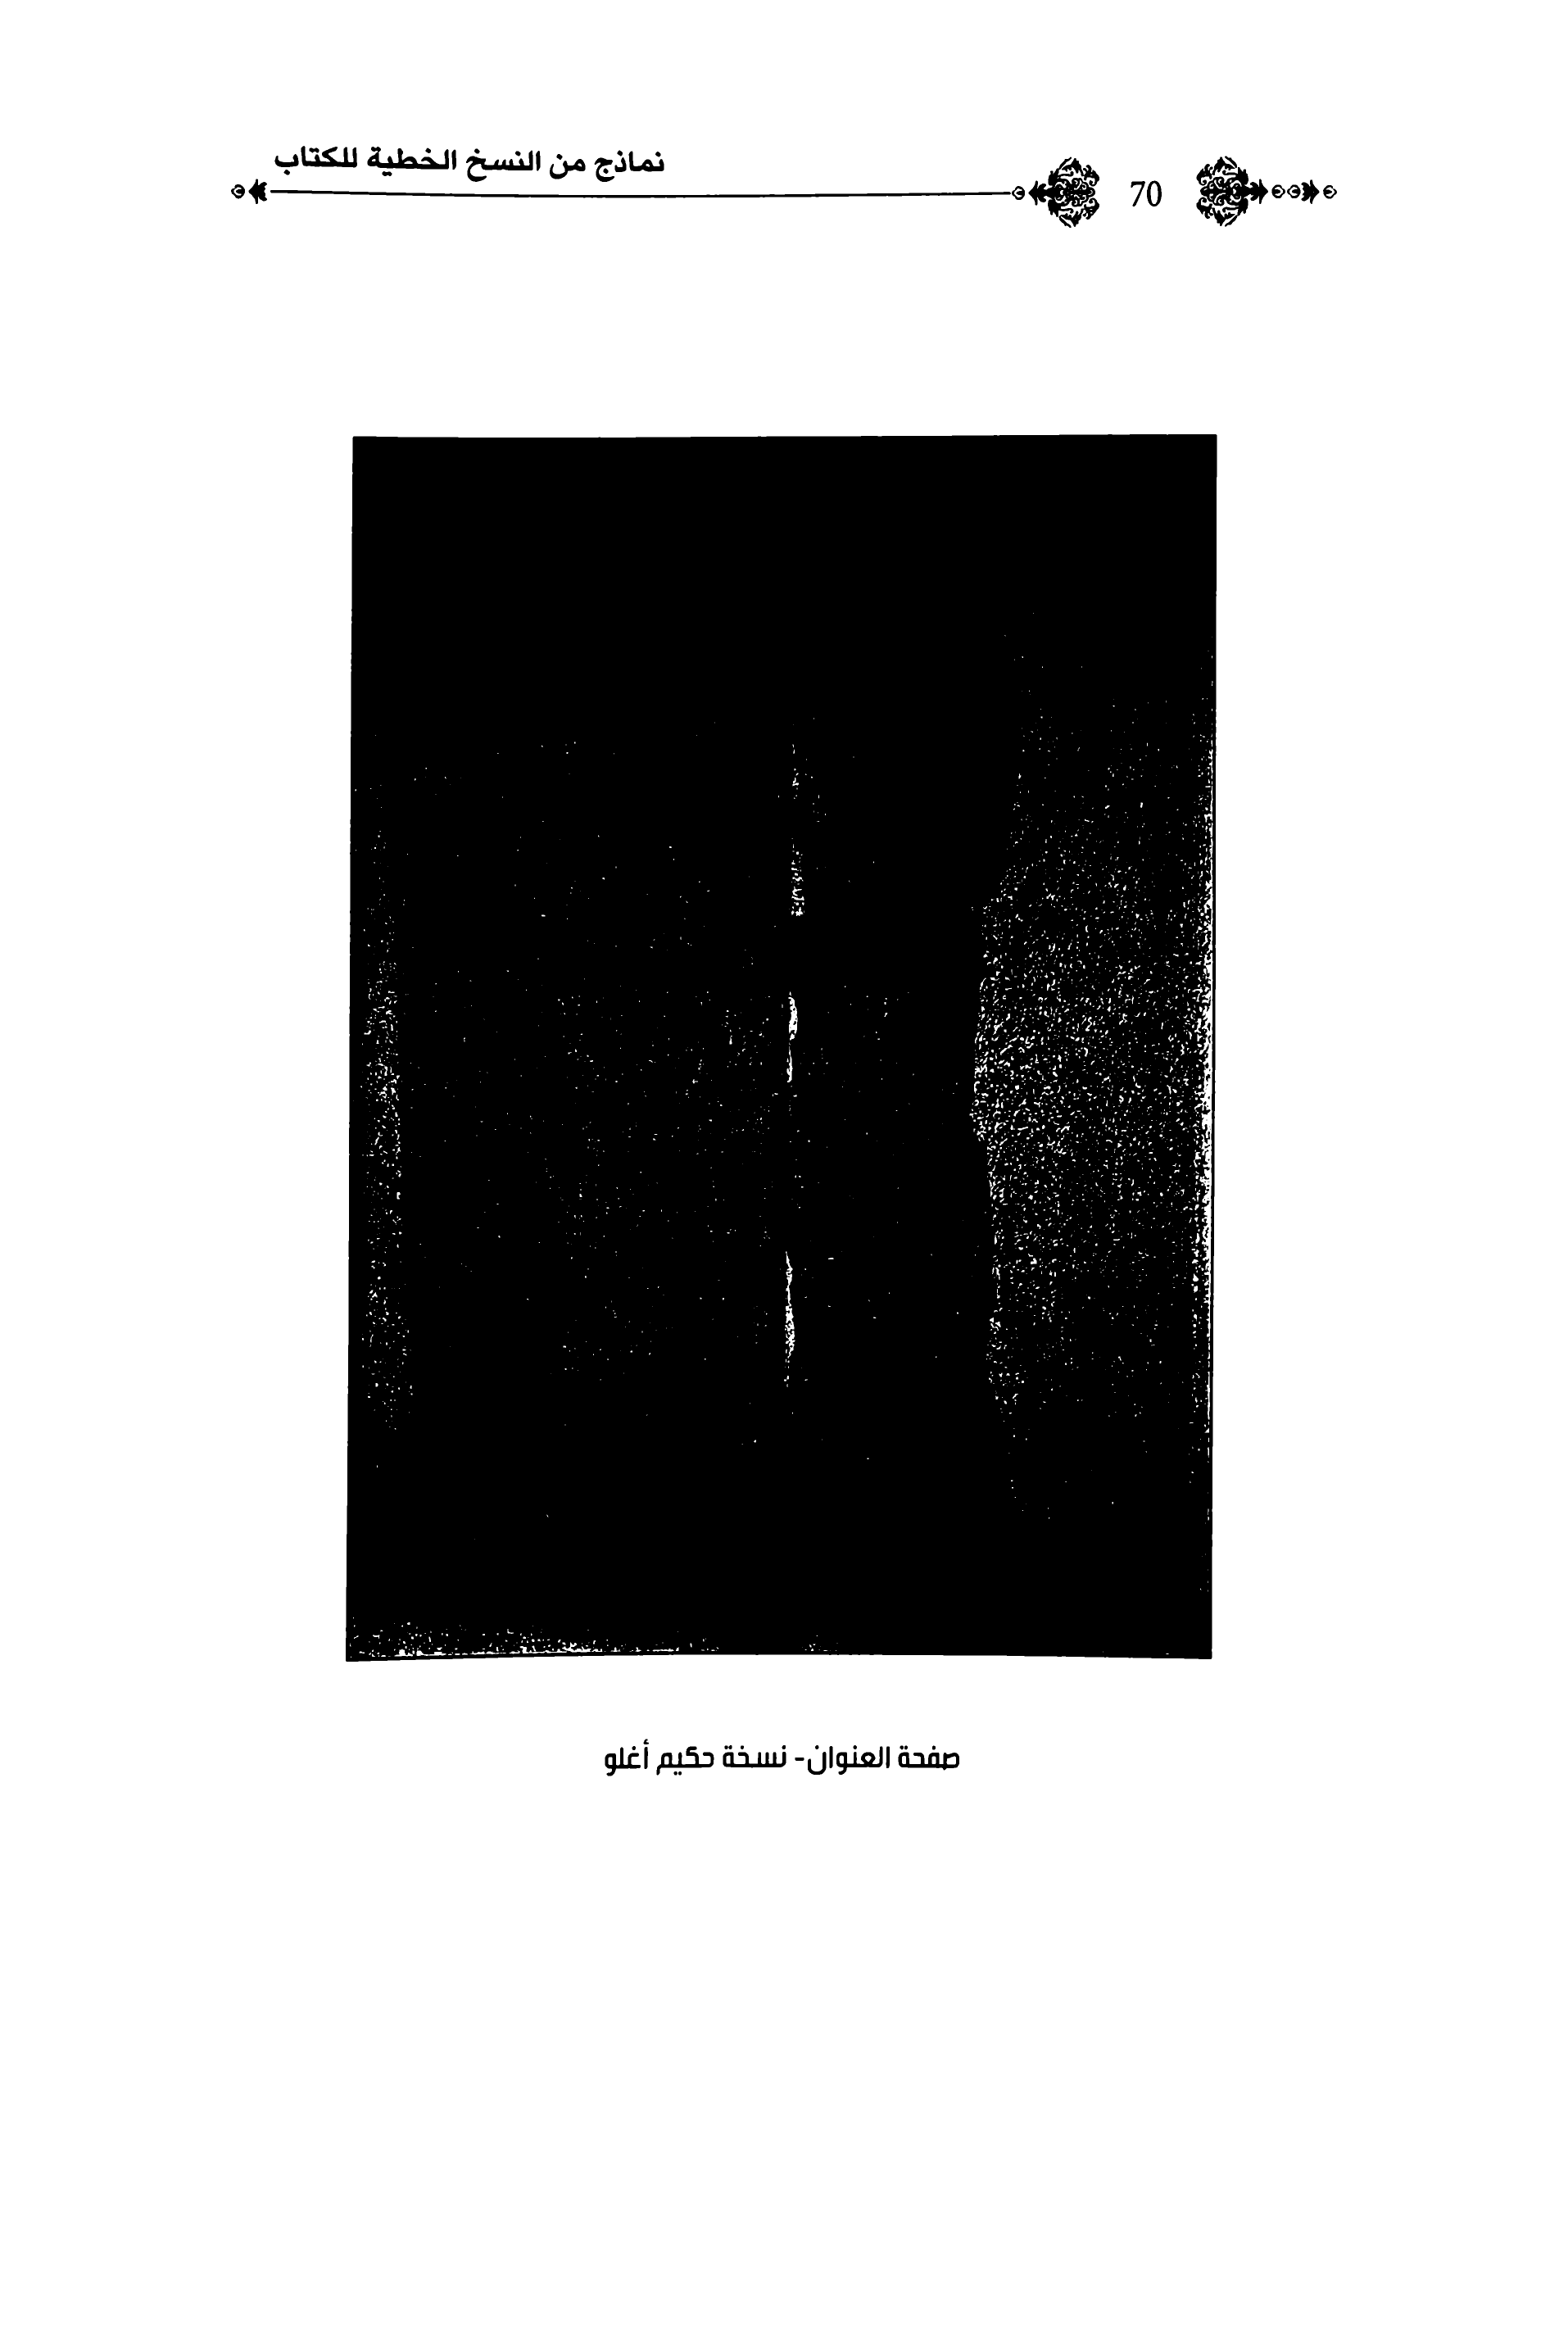 نماذج من النسخ الخطية للكتاب
70
صفحة العنوان- نسخة حكيم أغلو